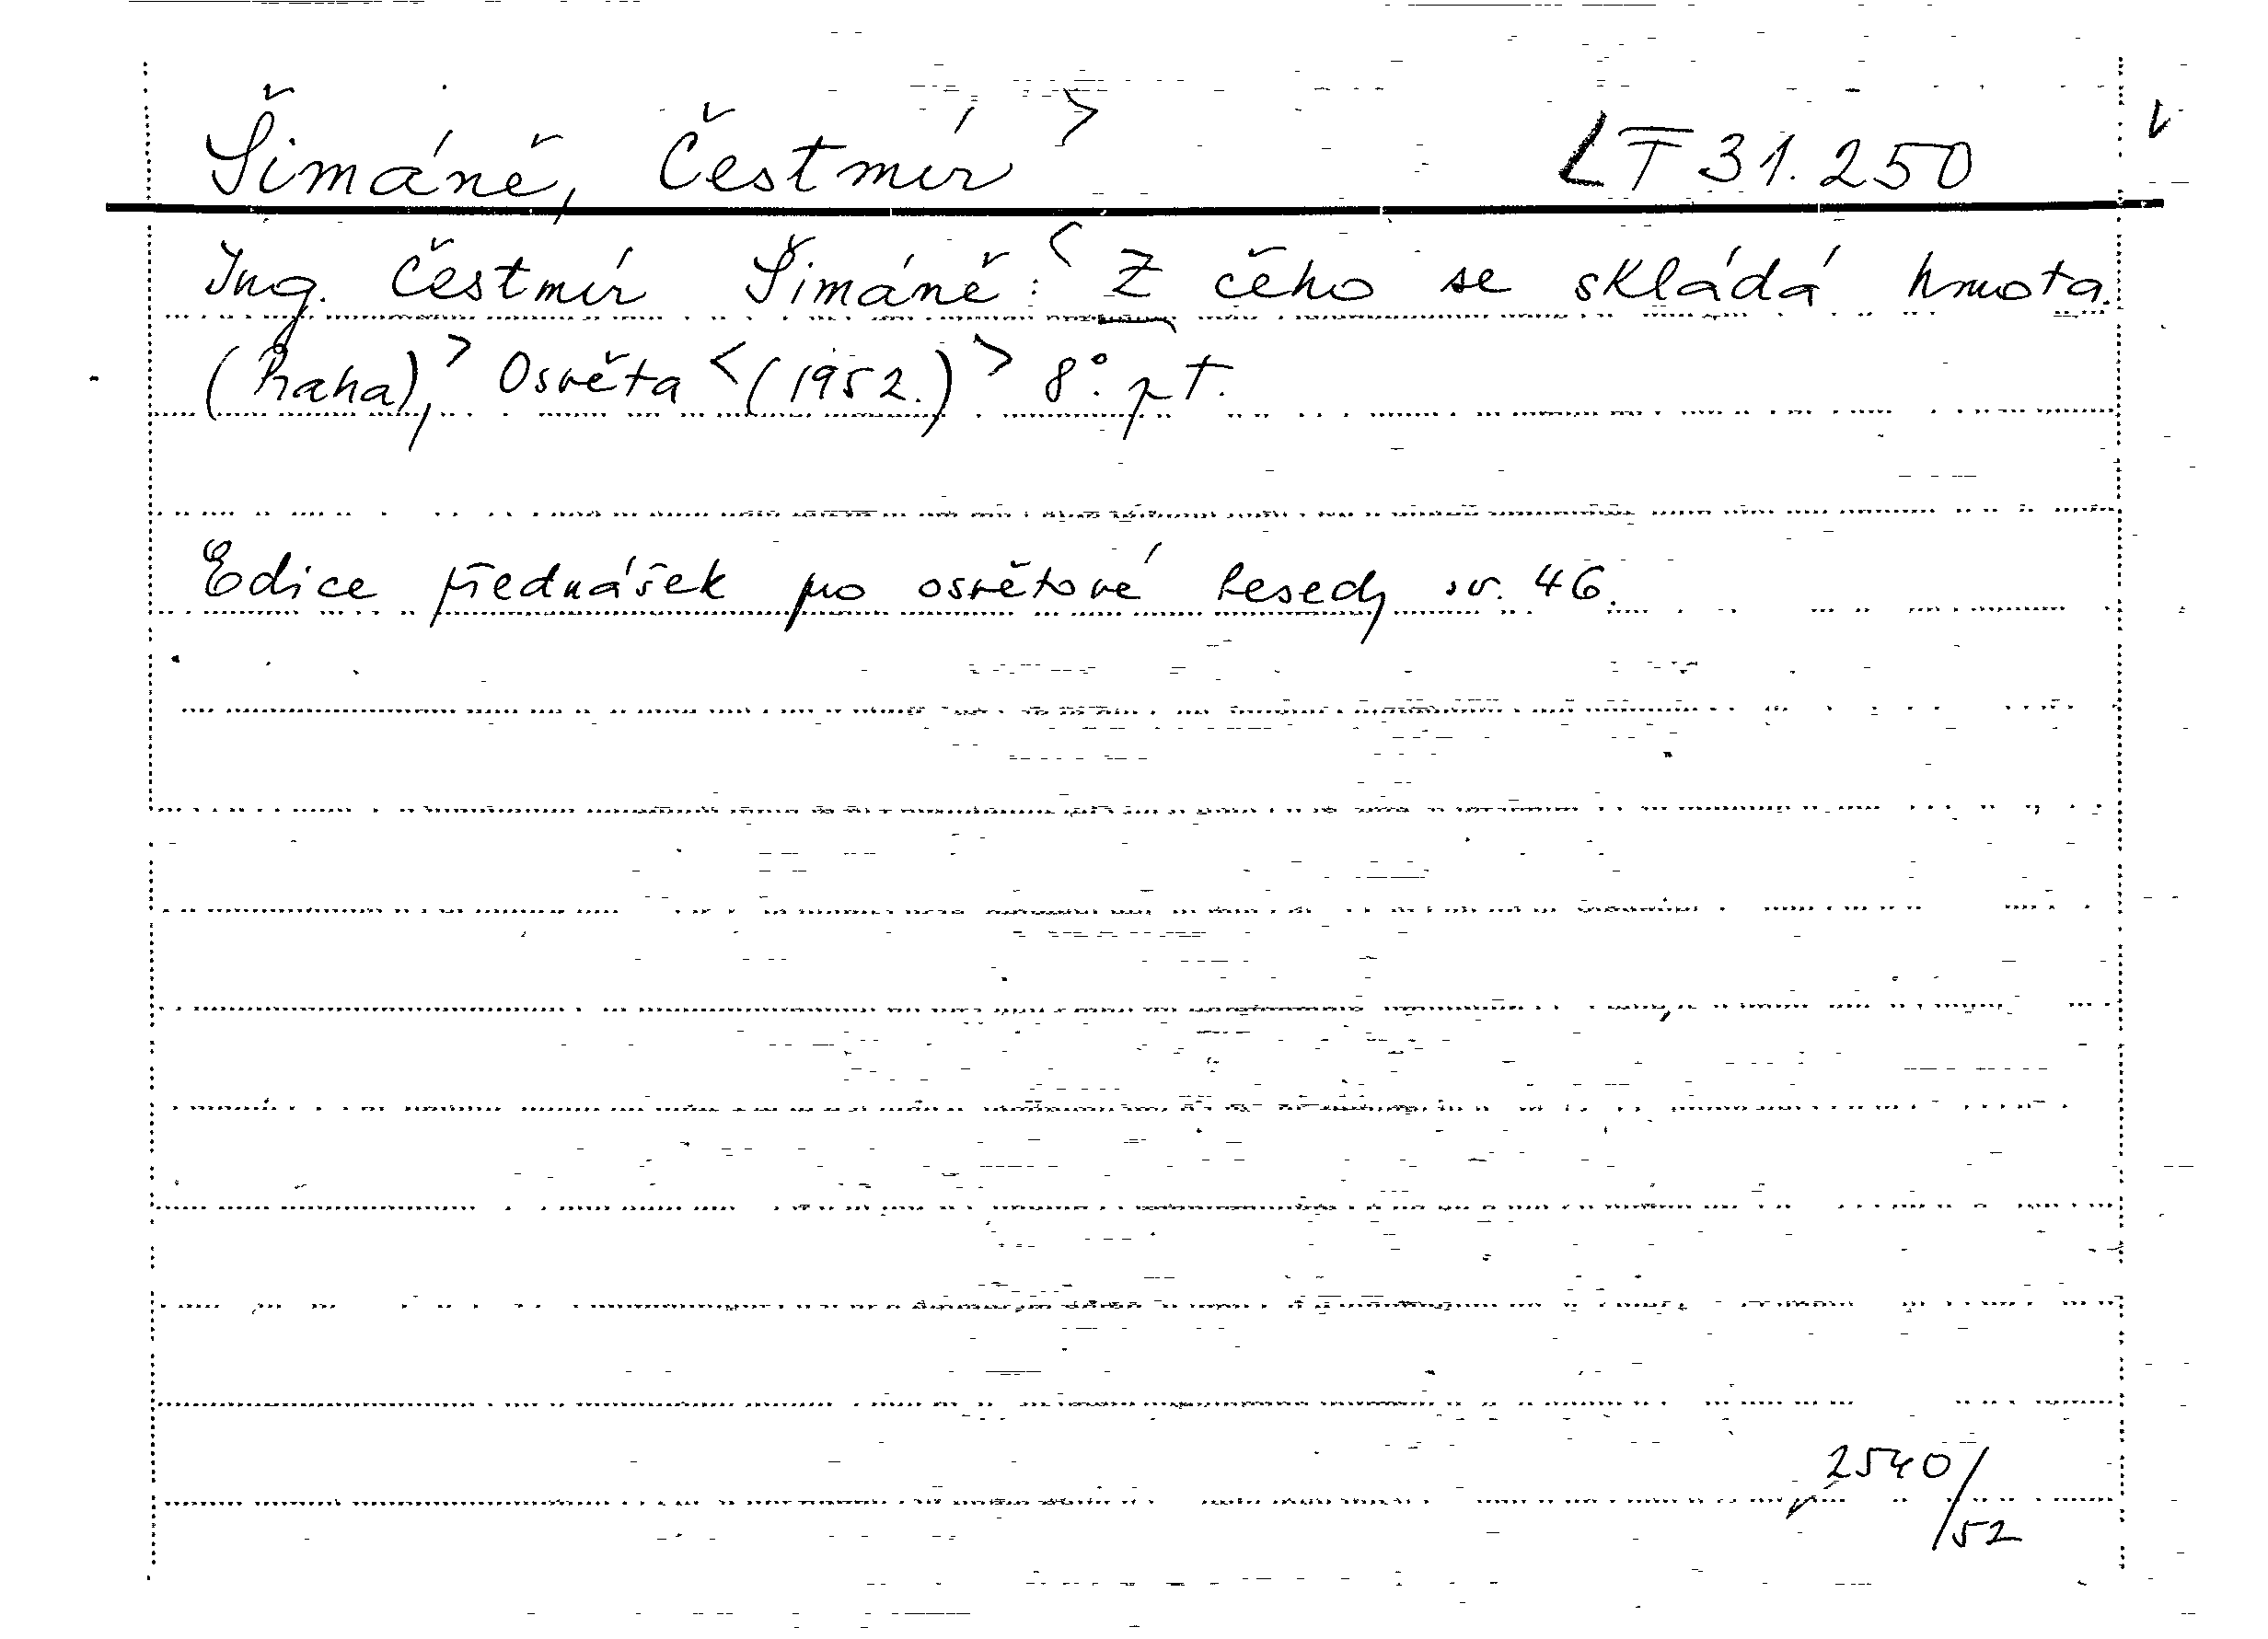 Šimáně, Čestmír > LT 31.250 v
Ing. Čestmír Šimáně: < Z čeho se skládá hmota.
(Praha), > Osvěta < (1952.) > 8°. pt.
Edice přednášek pro osvětové besedy sv. 46.
2540/52